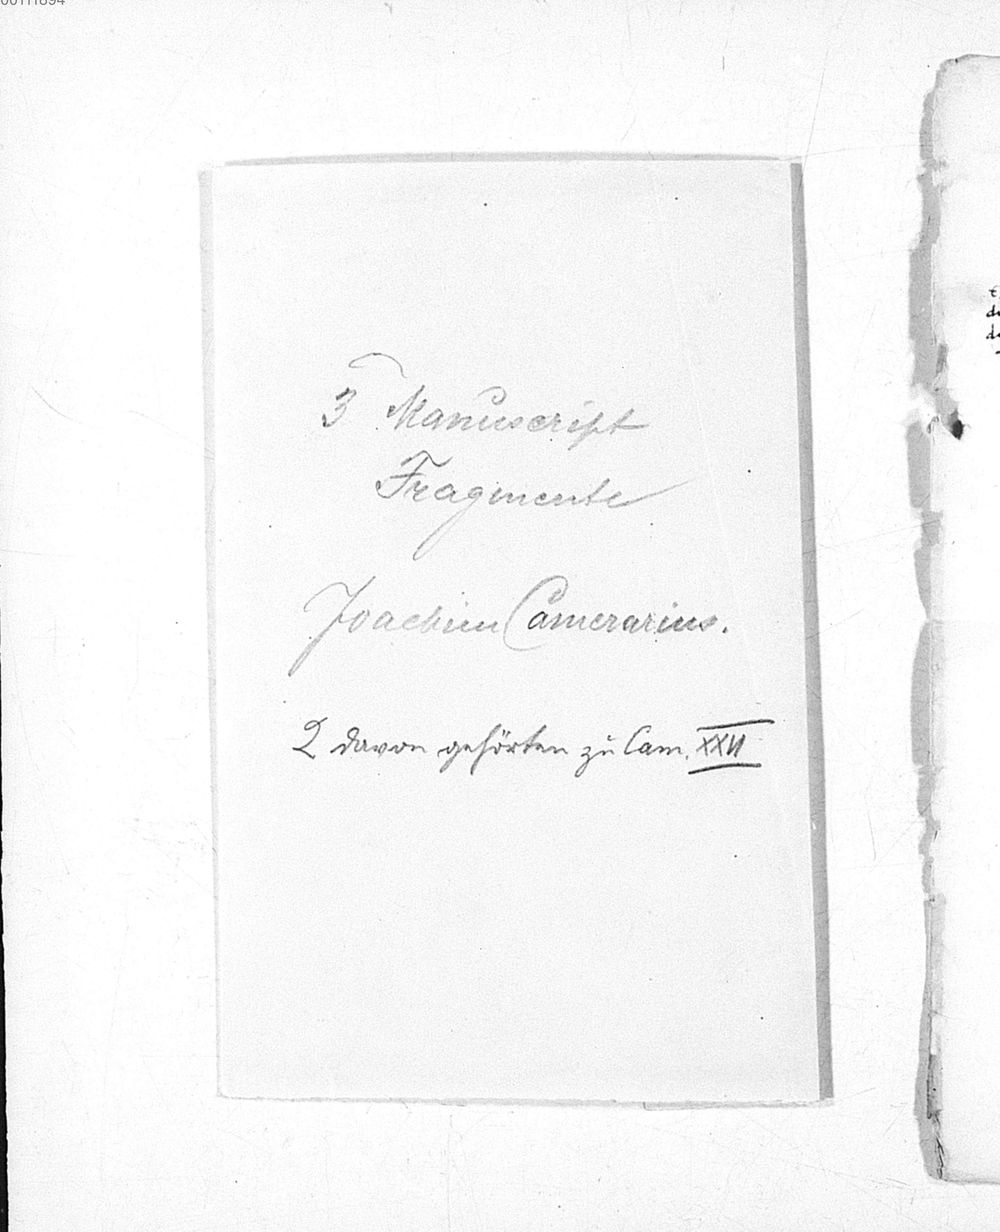 00111894
3 Manuscript
Fragmente
Joachim Camerarius.
2 davon gehörten zu Cam. XXII